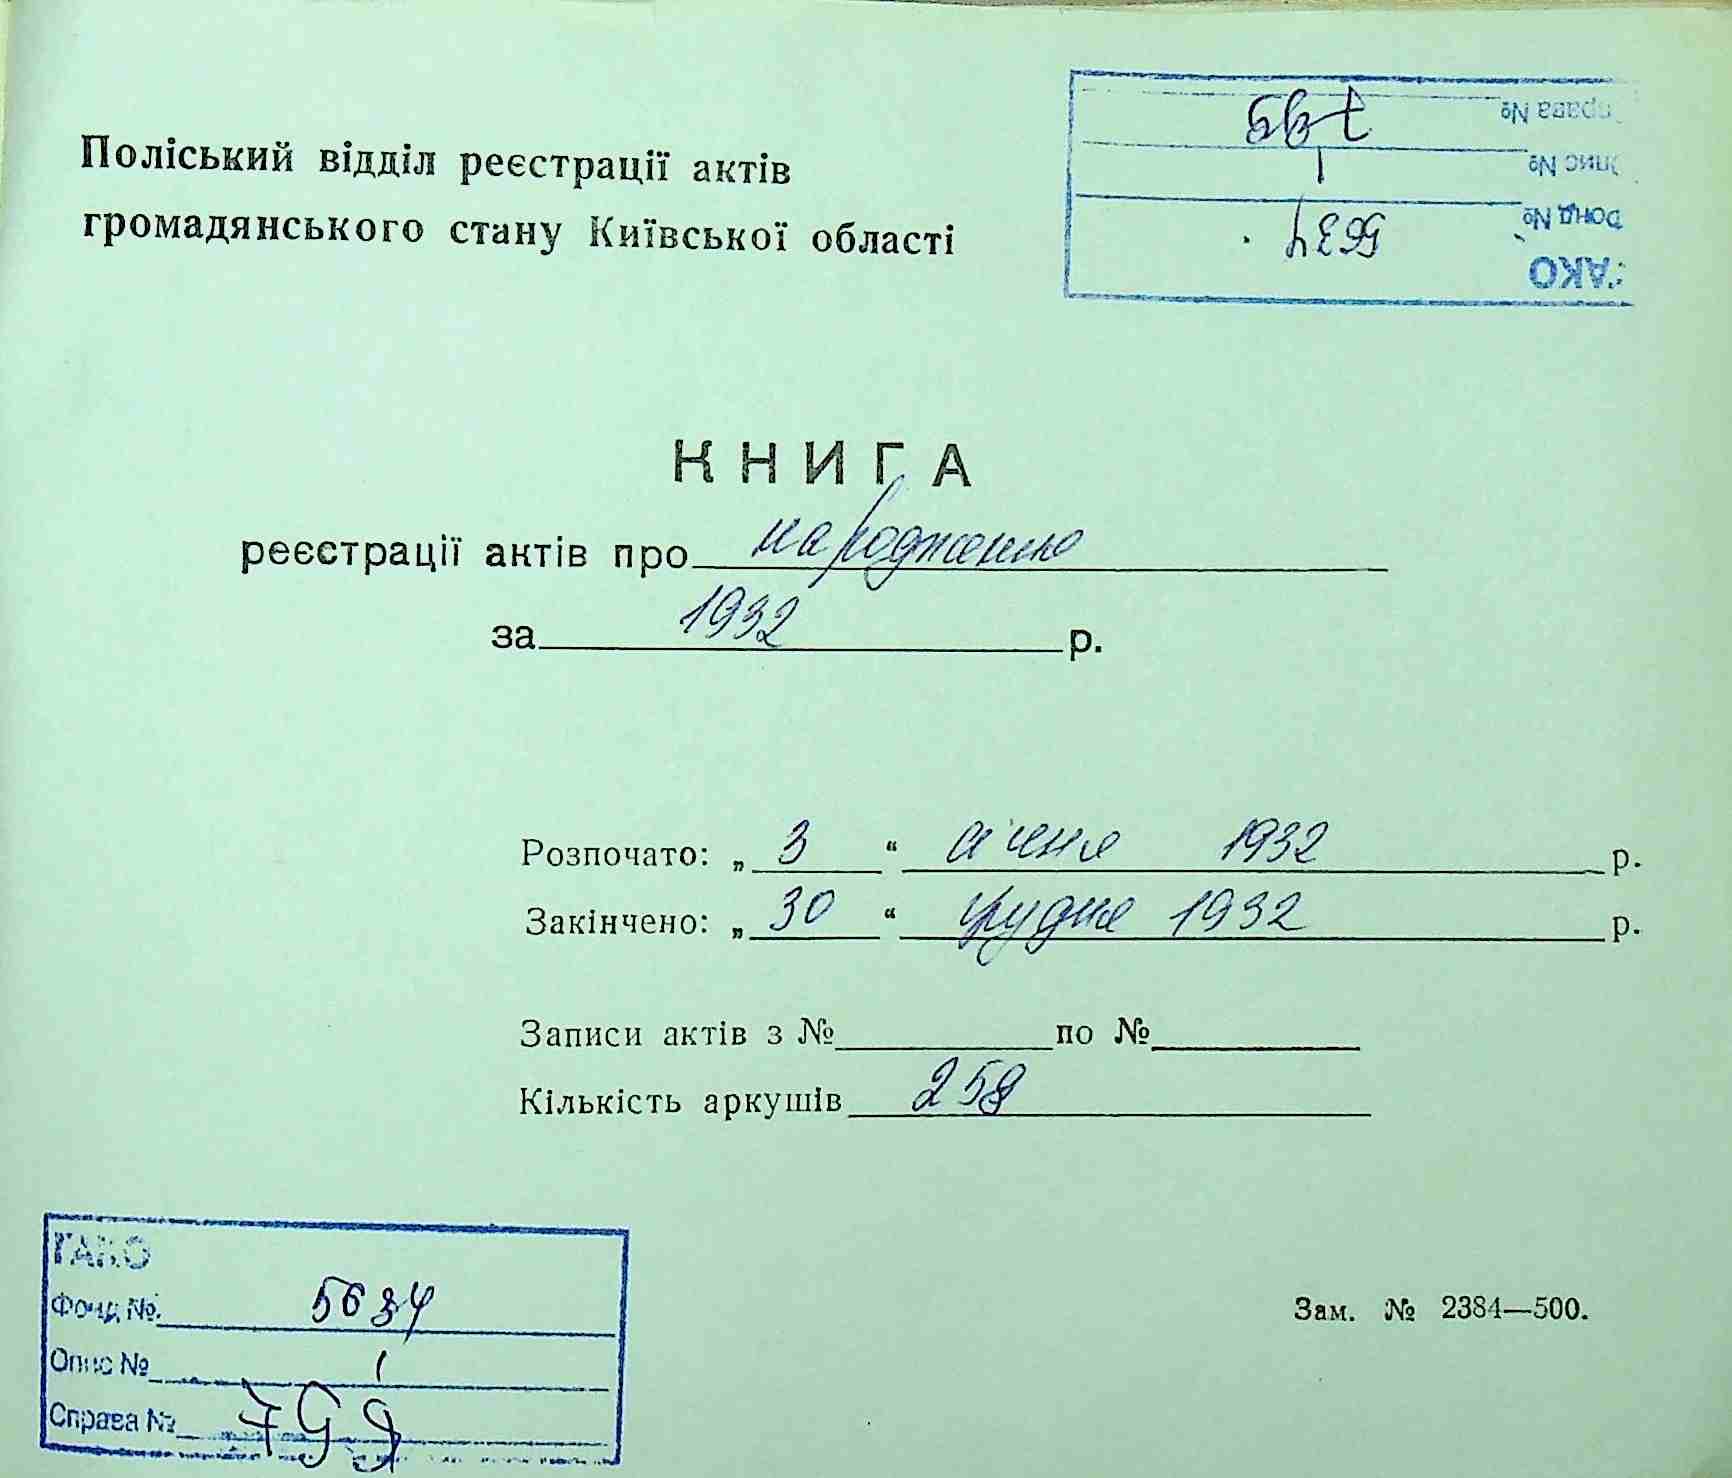 Поліський відділ реєстрації актів
громадянського стану Київської області
ДАКО
Фонд № 5634
Опис № 1
Справа № 799
КНИГА
реєстрації актів про народження
за 1932 р.
Розпочато: „ 3 “ січня 1932 р.
Закінчено: „ 30 “ грудня 1932 р.
Записи актів з № по №
Кількість аркушів 258
ДАКО
Фонд № 5634
Опис № 1
Справа № 799
Зам. № 2384—500.